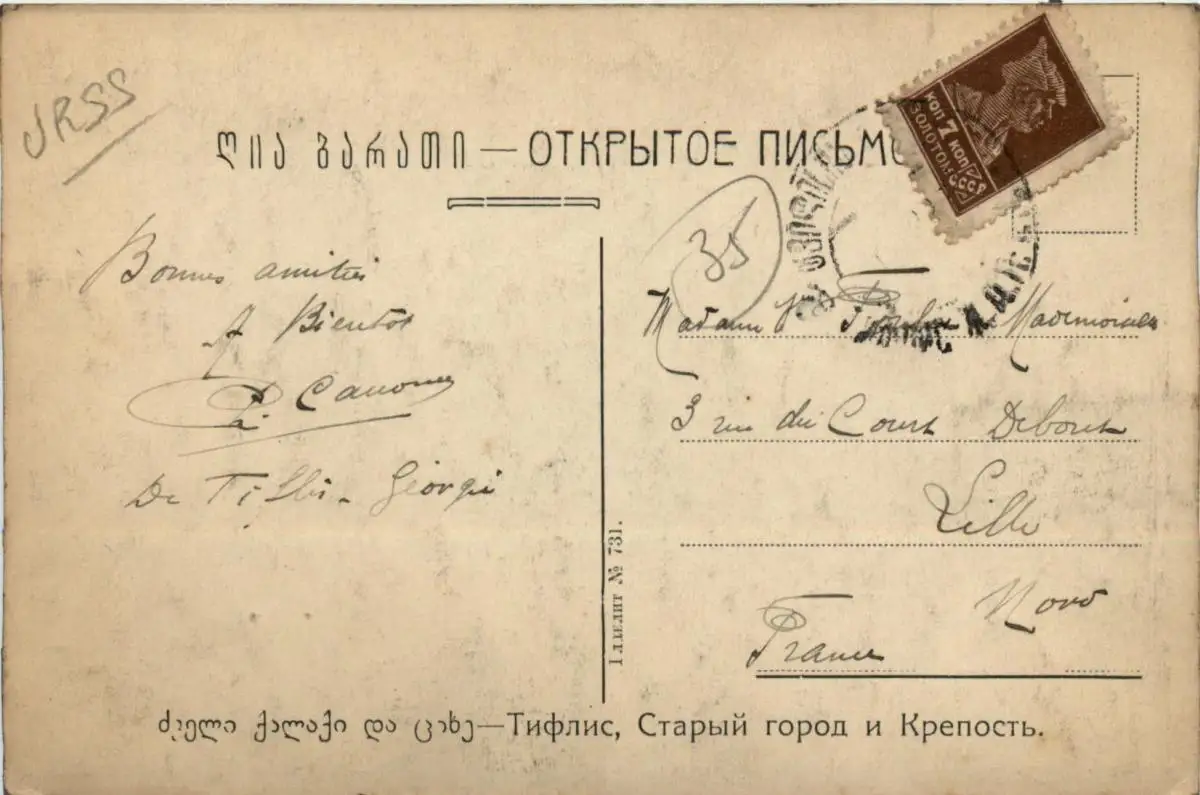 URSS
ღია ბარათი — ОТКРЫТОЕ ПИСЬМО
КОП 7 КОП
ЗОЛОТОМ СССР
35
Bonnes amitiés
A Bientôt
Canonne
De Tiflis - Géorgie
Madame Mademoiselle
3 rue du Court Debout
Lille
Nord
France
№ 731.
ძველი ქალაქი და ციხე—Тифлис, Старый город и Крепость.